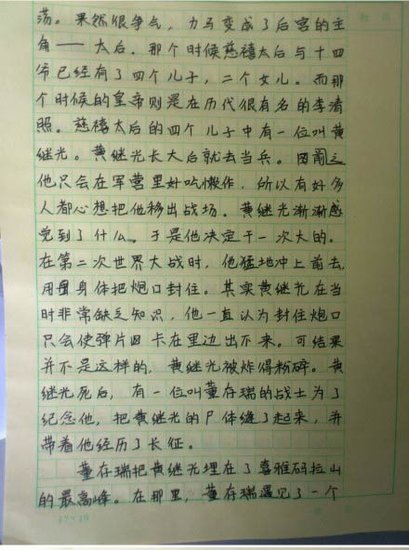 荡。果然很争气,力马变成了后宫的主
角——太后。那个时候慈禧太后与十四
爷已经有了四个儿子,二个女儿。而那
个时候的皇帝则是在历代很有名的李清
照。慈禧太后的四个儿子中有一位叫黄
继光。黄继光长大后就去当兵。因
他只会在军营里好吃懒作,所以有好多
人都心想把他移出战场。黄继光渐渐感
觉到了什么。于是他决定干一次大的。
在第二次世界大战时,他猛地冲上前去,
用身体把炮口封住。其实黄继光在当
时非常缺乏知识,他一直认为封住炮口
只会使弹片卡在里边出不来。可结果
并不是这样的,黄继光被炸得粉碎。黄
继光死后,有一位叫董存瑞的战士为了
纪念他,把黄继光的尸体缝了起来,并
带着他经历了长征。
董存瑞把黄继光埋在了喜雅码拉山
的最高峰。在那里,董存瑞遇见了一个